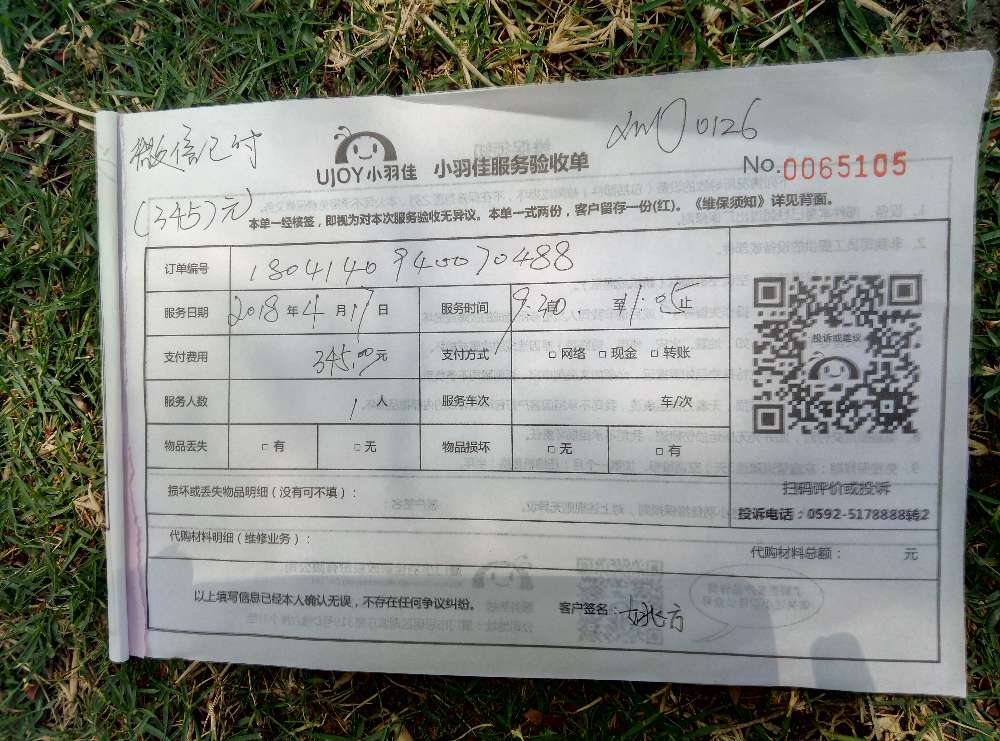 微信已付
0126
UJOY小羽佳 小羽佳服务验收单
No.0065105
(345元)
本单一经核签，即视为对本次服务验收无异议。本单一式两份，客户留存一份(红)。《维保须知》详见背面。
订单编号 1804140940070488
服务日期 2018年4月17日 服务时间 9:30 至11:05止
支付费用 345.00元 支付方式 □网络 □现金 □转账
投诉或建议
服务人数 1人 服务车次 车/次
物品丢失 □有 □无 物品损坏 □无 □有
损坏或丢失物品明细（没有可不填）：
扫码评价或投诉
投诉电话：0592-5178888转2
代购材料明细（维修业务）：
代购材料总额： 元
以上填写信息已经本人确认无误，不存在任何争议纠纷。 客户签名：姚方